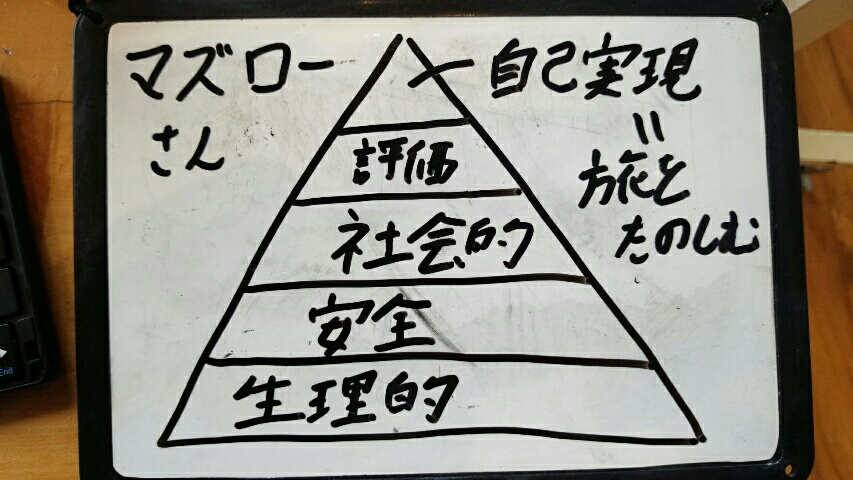 マズロー
さん
自己実現
=
旅を
たのしむ
評価
社会的
安全
生理的
End